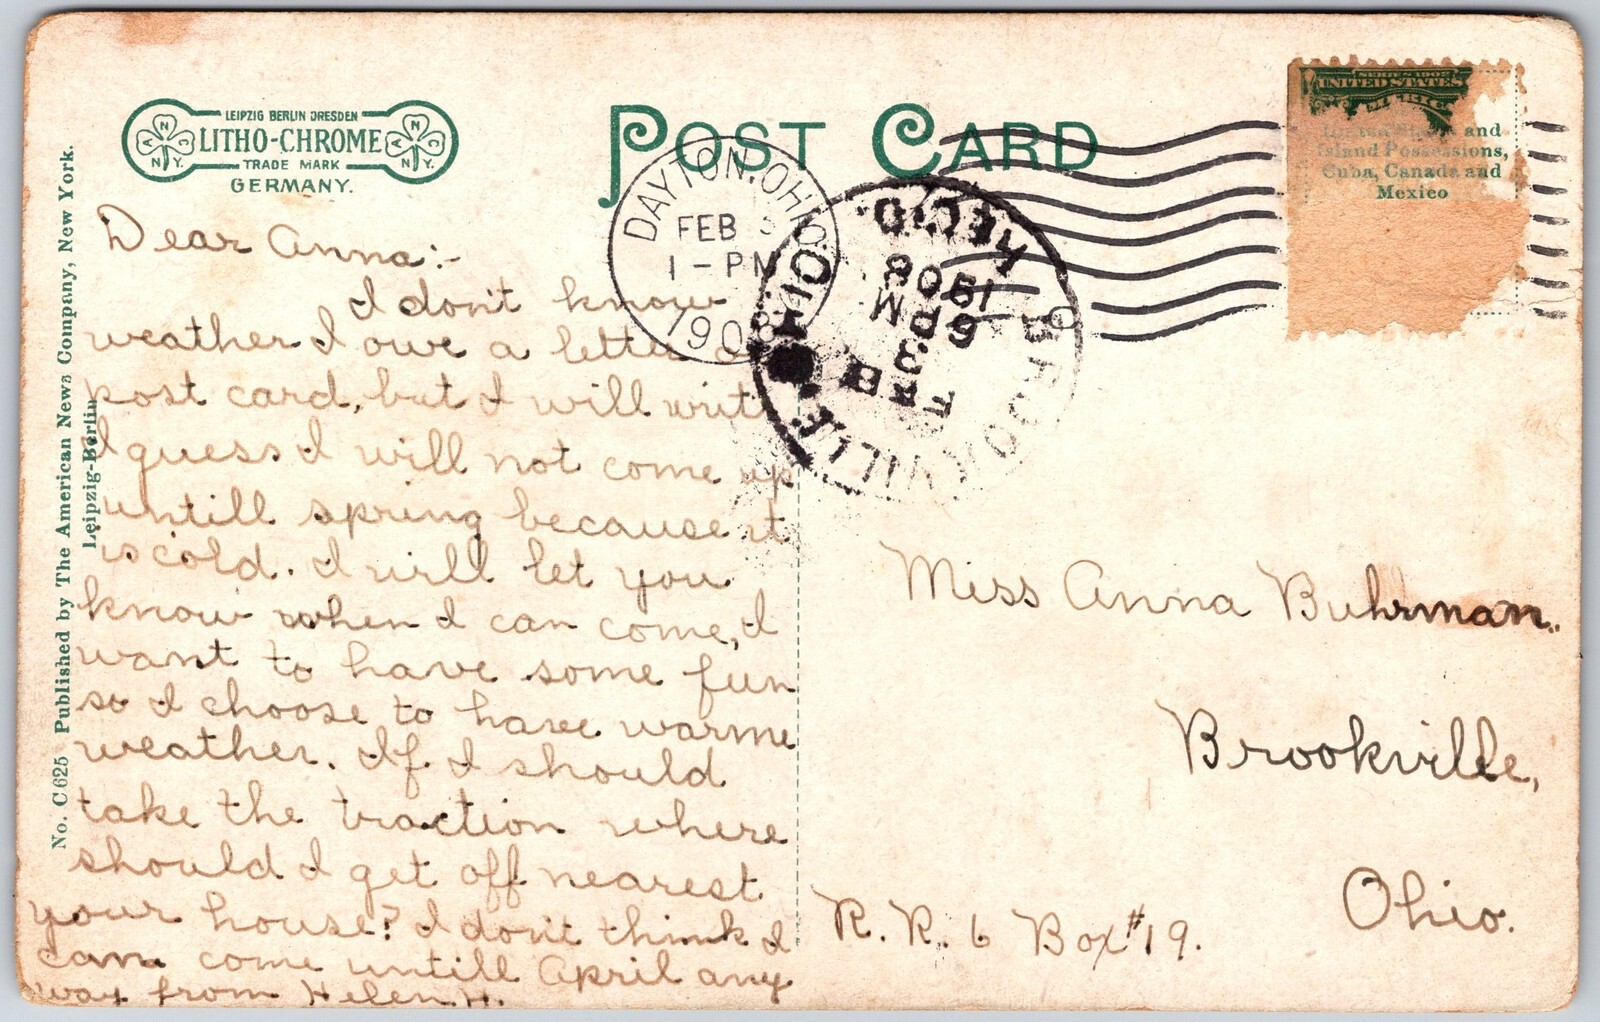 LEIPZIG BERLIN DRESDEN
LITHO-CHROME
TRADE MARK
GERMANY.
POST CARD
SERIES 1902
UNITED STATES
and
Island Possessions,
Cuba, Canada and
Mexico
DAYTON, OHIO
FEB 3
1-PM
1908
BROOKVILLE OHIO
REC'D.
1908
6 PM
3
FEB
No. C625 Published by The American News Company, New York.
Leipzig-Berlin
Dear Anna:-
I don't know
weather I owe a letter or
post card, but I will write
I guess I will not come up
untill spring because it
is cold. I will let you
know when I can come, I
want to have some fun
so I choose to have warme
weather. If I should
take the traction where
should I get off nearest
your house? I don't think I
can come untill April any
way from Helen H.
Miss Anna Buhrman.
Brookville,
Ohio.
R. R. 6 Box #19.